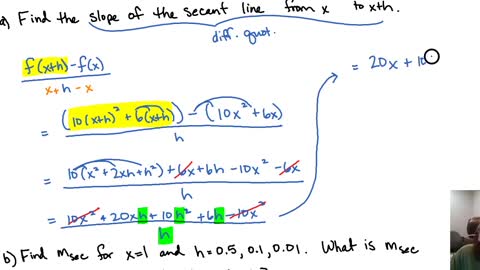 a) Find the slope of the secant line from x to x+h.
diff. quot.
f(x+h) - f(x)
x + h - x
= 20x + 10
= (10(x+h)² + 6(x+h)) - (10x² + 6x)
h
= 10(x² + 2xh + h²) + 6x + 6h - 10x² - 6x
h
= 10x² + 20xh + 10h² + 6h - 10x²
h
b) Find msec for x=1 and h=0.5, 0.1, 0.01. What is msec